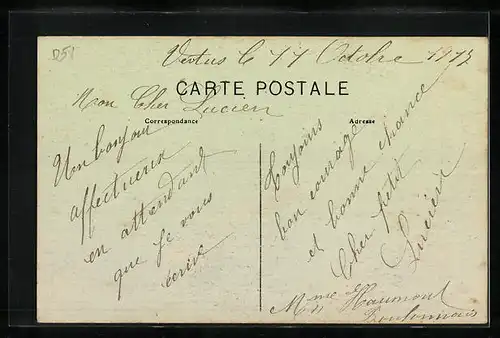 D51
Vertus le 17 Octobre 1915
CARTE POSTALE
Mon Cher Lucien
Correspondance
Adresse
Un bonjour
affectueux
en attendant
que je vous
écrive
Toujours
bon courage
et bonne chance
Cher petit
Lucien
Mme Haumont